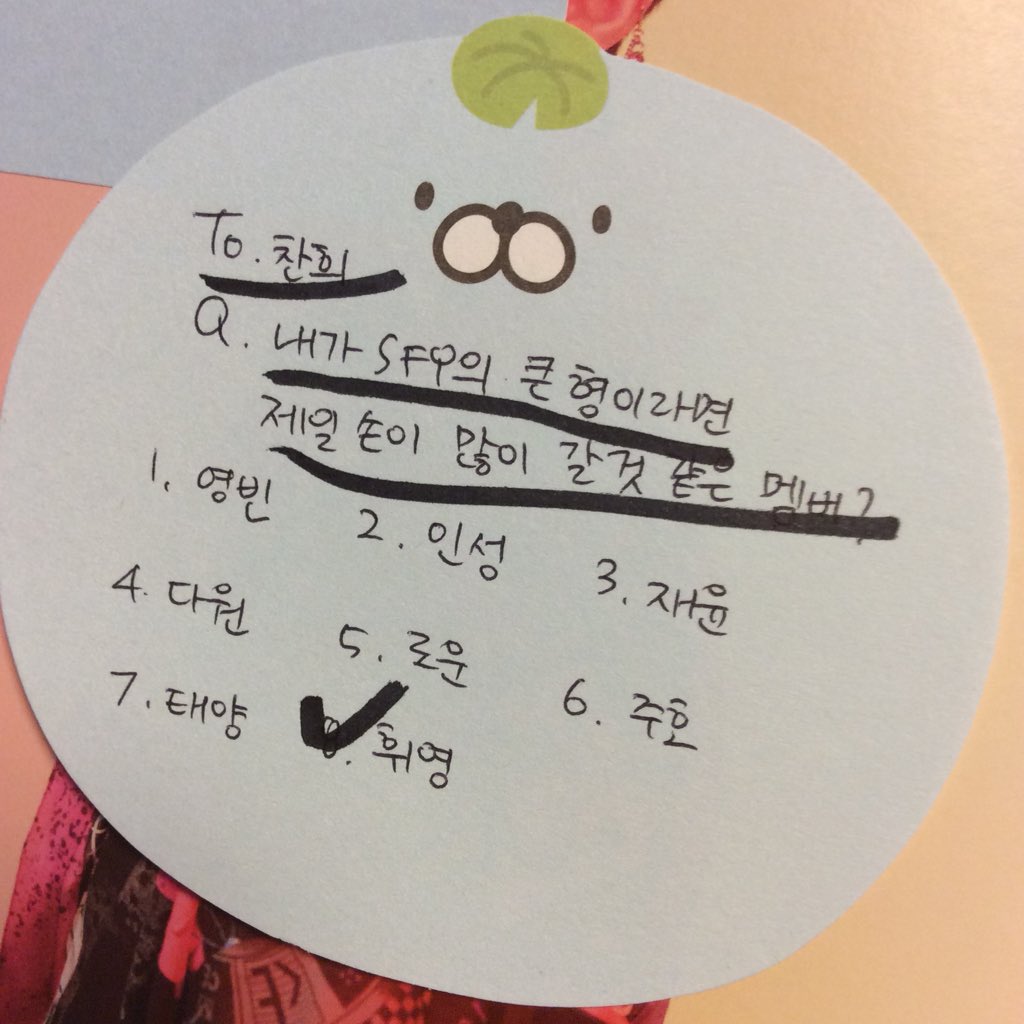 To. 찬희
Q. 내가 SF9의 큰 형이라면
제일 손이 많이 갈것 같은 멤버?
1. 영빈 2. 인성 3. 재윤
4. 다원 5. 로운 6. 주호
7. 태양 8. 휘영